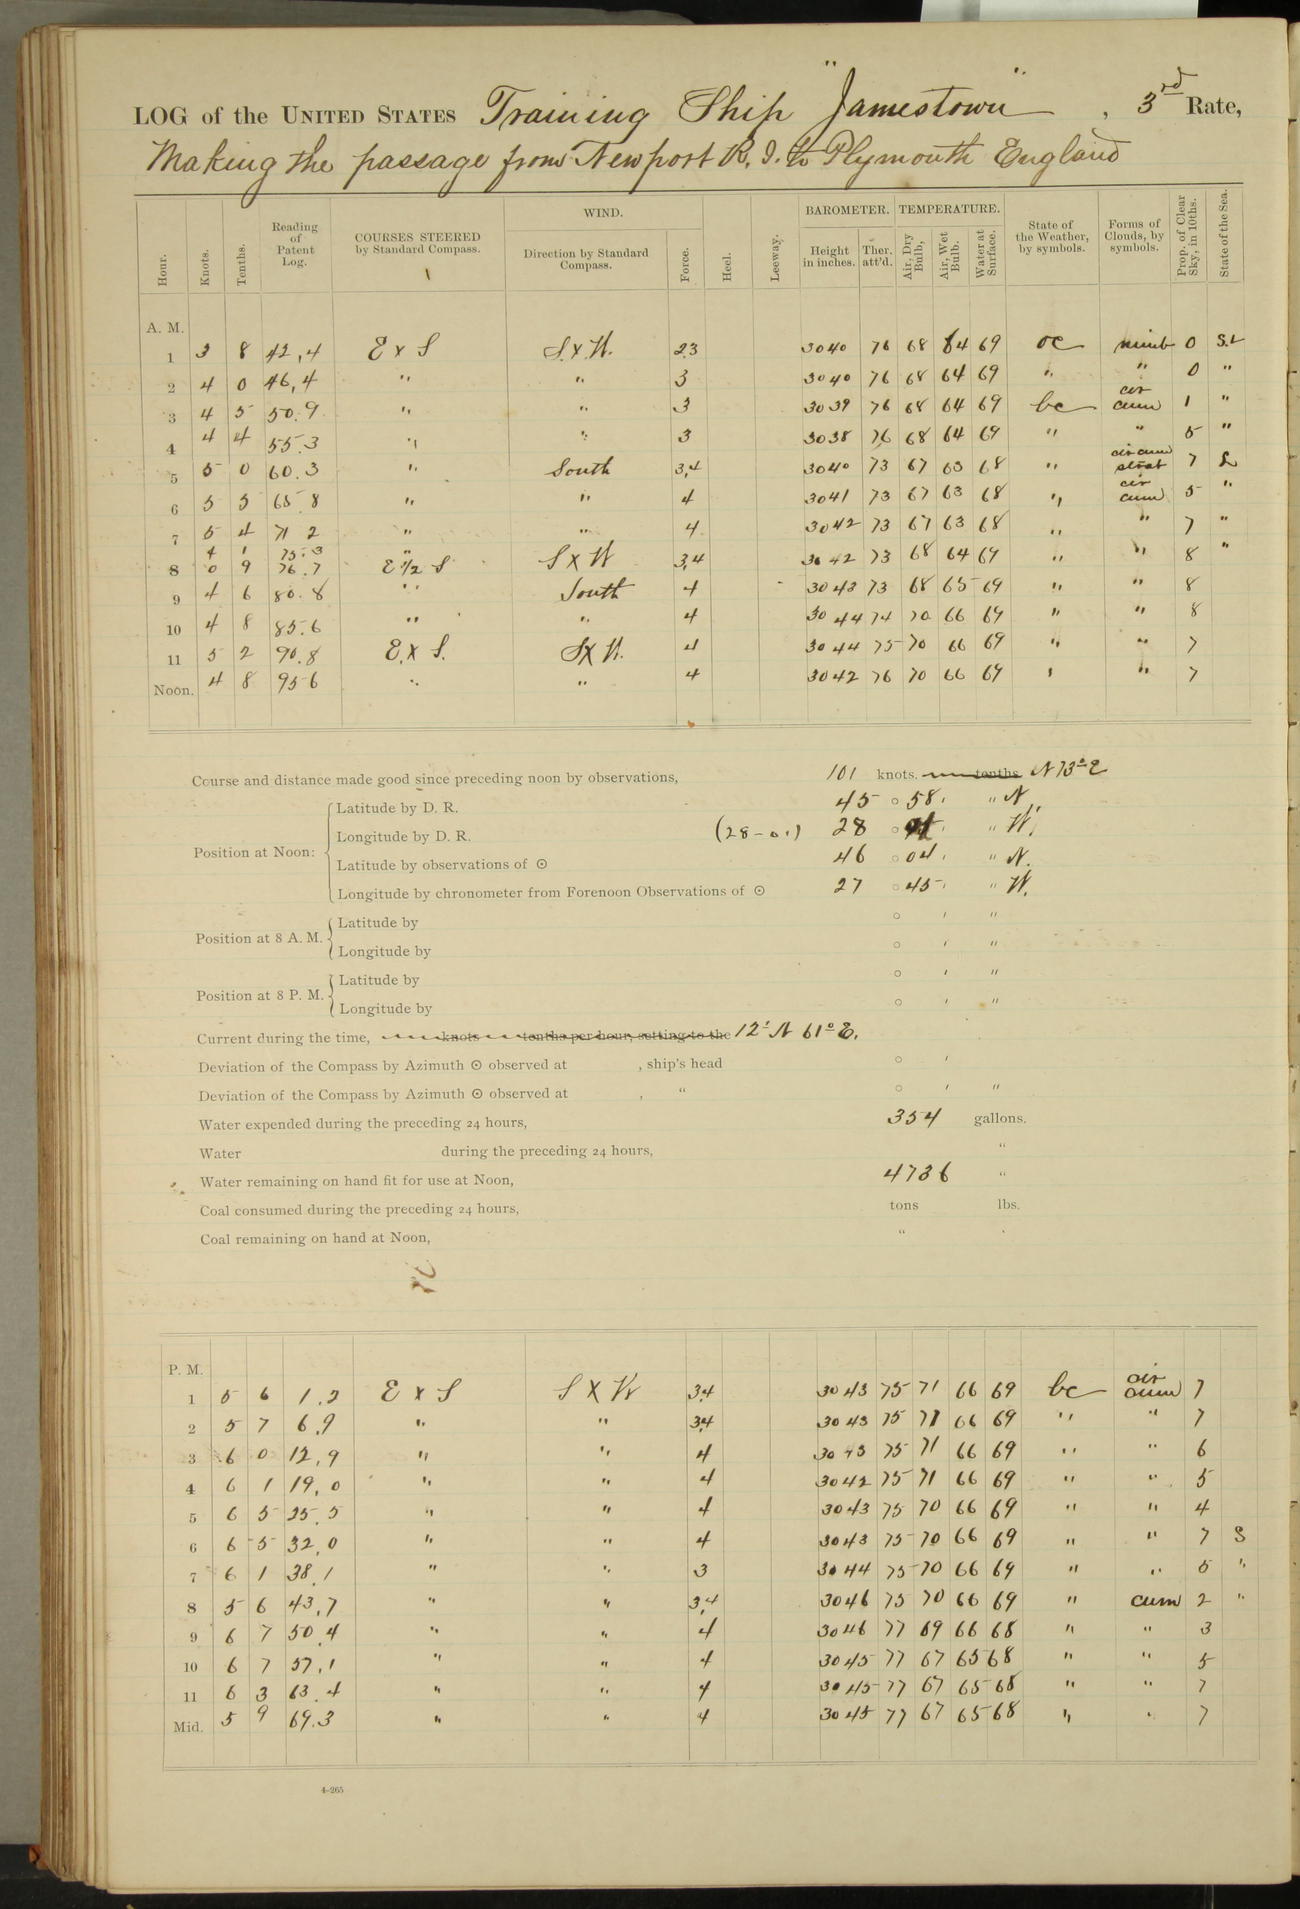 LOG of the UNITED STATES Training Ship "Jamestown", 3rd Rate,
Making the passage from Newport R. I. to Plymouth England
Hour. Knots. Tenths. Reading of Patent Log. COURSES STEERED by Standard Compass. WIND. Direction by Standard Compass. Force. Heel. Leeway. BAROMETER. Height in inches. Ther. att'd. TEMPERATURE. Air, Dry Bulb, Air, Wet Bulb. Water at Surface. State of the Weather, by symbols. Forms of Clouds, by symbols. Prop. of Clear Sky, in 10ths. State of the Sea.
A. M.
1 3 8 42,4 E x S S. x W. 2.3 3040 76 68 64 69 oc nimb 0 S.L
2 4 0 46,4 " " 3 3040 76 68 64 69 " " 0 "
3 4 5 50.9 " " 3 3039 76 68 64 69 bc cir cum 1 "
4 4 4 55.3 " " 3 3038 76 68 64 69 " " 5 "
5 5 0 60.3 " South 3,4 3040 73 67 63 68 " cir cum strat 7 L
6 5 5 65.8 " " 4 3041 73 67 63 68 " cir cum 5 "
7 5 4 71 2 " " 4 3042 73 67 63 68 " " 7 "
4 1 75.3 "
8 0 9 76.7 E 1/2 S S x W 3,4 3042 73 68 64 69 " " 8 "
9 4 6 80.8 " South 4 3043 73 68 65 69 " " 8
10 4 8 85.6 " " 4 3044 74 70 66 69 " " 8
11 5 2 90.8 E. x S. S x W. 4 3044 75 70 66 69 " " 7
Noon. 4 8 956 " " 4 3042 76 70 66 69 " " 7
Course and distance made good since preceding noon by observations, 101 knots. tenths N 73° E
Position at Noon:
Latitude by D. R. 45 ° 58 ' " N.
Longitude by D. R. (28-01) 28 ° ' " W.
Latitude by observations of ☉ 46 ° 04 ' " N.
Longitude by chronometer from Forenoon Observations of ☉ 27 ° 45 ' " W.
Position at 8 A. M.
Latitude by ° ' "
Longitude by ° ' "
Position at 8 P. M.
Latitude by ° ' "
Longitude by ° ' "
Current during the time, knots tenths per hour, setting to the 12' N 61° E.
Deviation of the Compass by Azimuth ☉ observed at , ship's head ° '
Deviation of the Compass by Azimuth ☉ observed at , " ° ' "
Water expended during the preceding 24 hours, 354 gallons.
Water during the preceding 24 hours, "
Water remaining on hand fit for use at Noon, 4736 "
Coal consumed during the preceding 24 hours, tons lbs.
Coal remaining on hand at Noon, "
P. M.
1 5 6 1.2 E x S S x W 3,4 3043 75 71 66 69 bc cir cum 7
2 5 7 6.9 " " 3,4 3043 75 71 66 69 " " 7
3 6 0 12,9 " " 4 3043 75 71 66 69 " " 6
4 6 1 19,0 " " 4 3042 75 71 66 69 " " 5
5 6 5 25.5 " " 4 3043 75 70 66 69 " " 4
6 6 5 32,0 " " 4 3043 75 70 66 69 " " 7 S
7 6 1 38.1 " " 3 3044 75 70 66 69 " " 5 "
8 5 6 43,7 " " 3,4 3046 75 70 66 69 " cum 2 "
9 6 7 50.4 " " 4 3046 77 69 66 68 " " 3
10 6 7 57,1 " " 4 3045 77 67 65 68 " " 5
11 6 3 63.4 " " 4 3045 77 67 65 68 " " 7
Mid. 5 9 69.3 " " 4 3045 77 67 65 68 " " 7
4-265